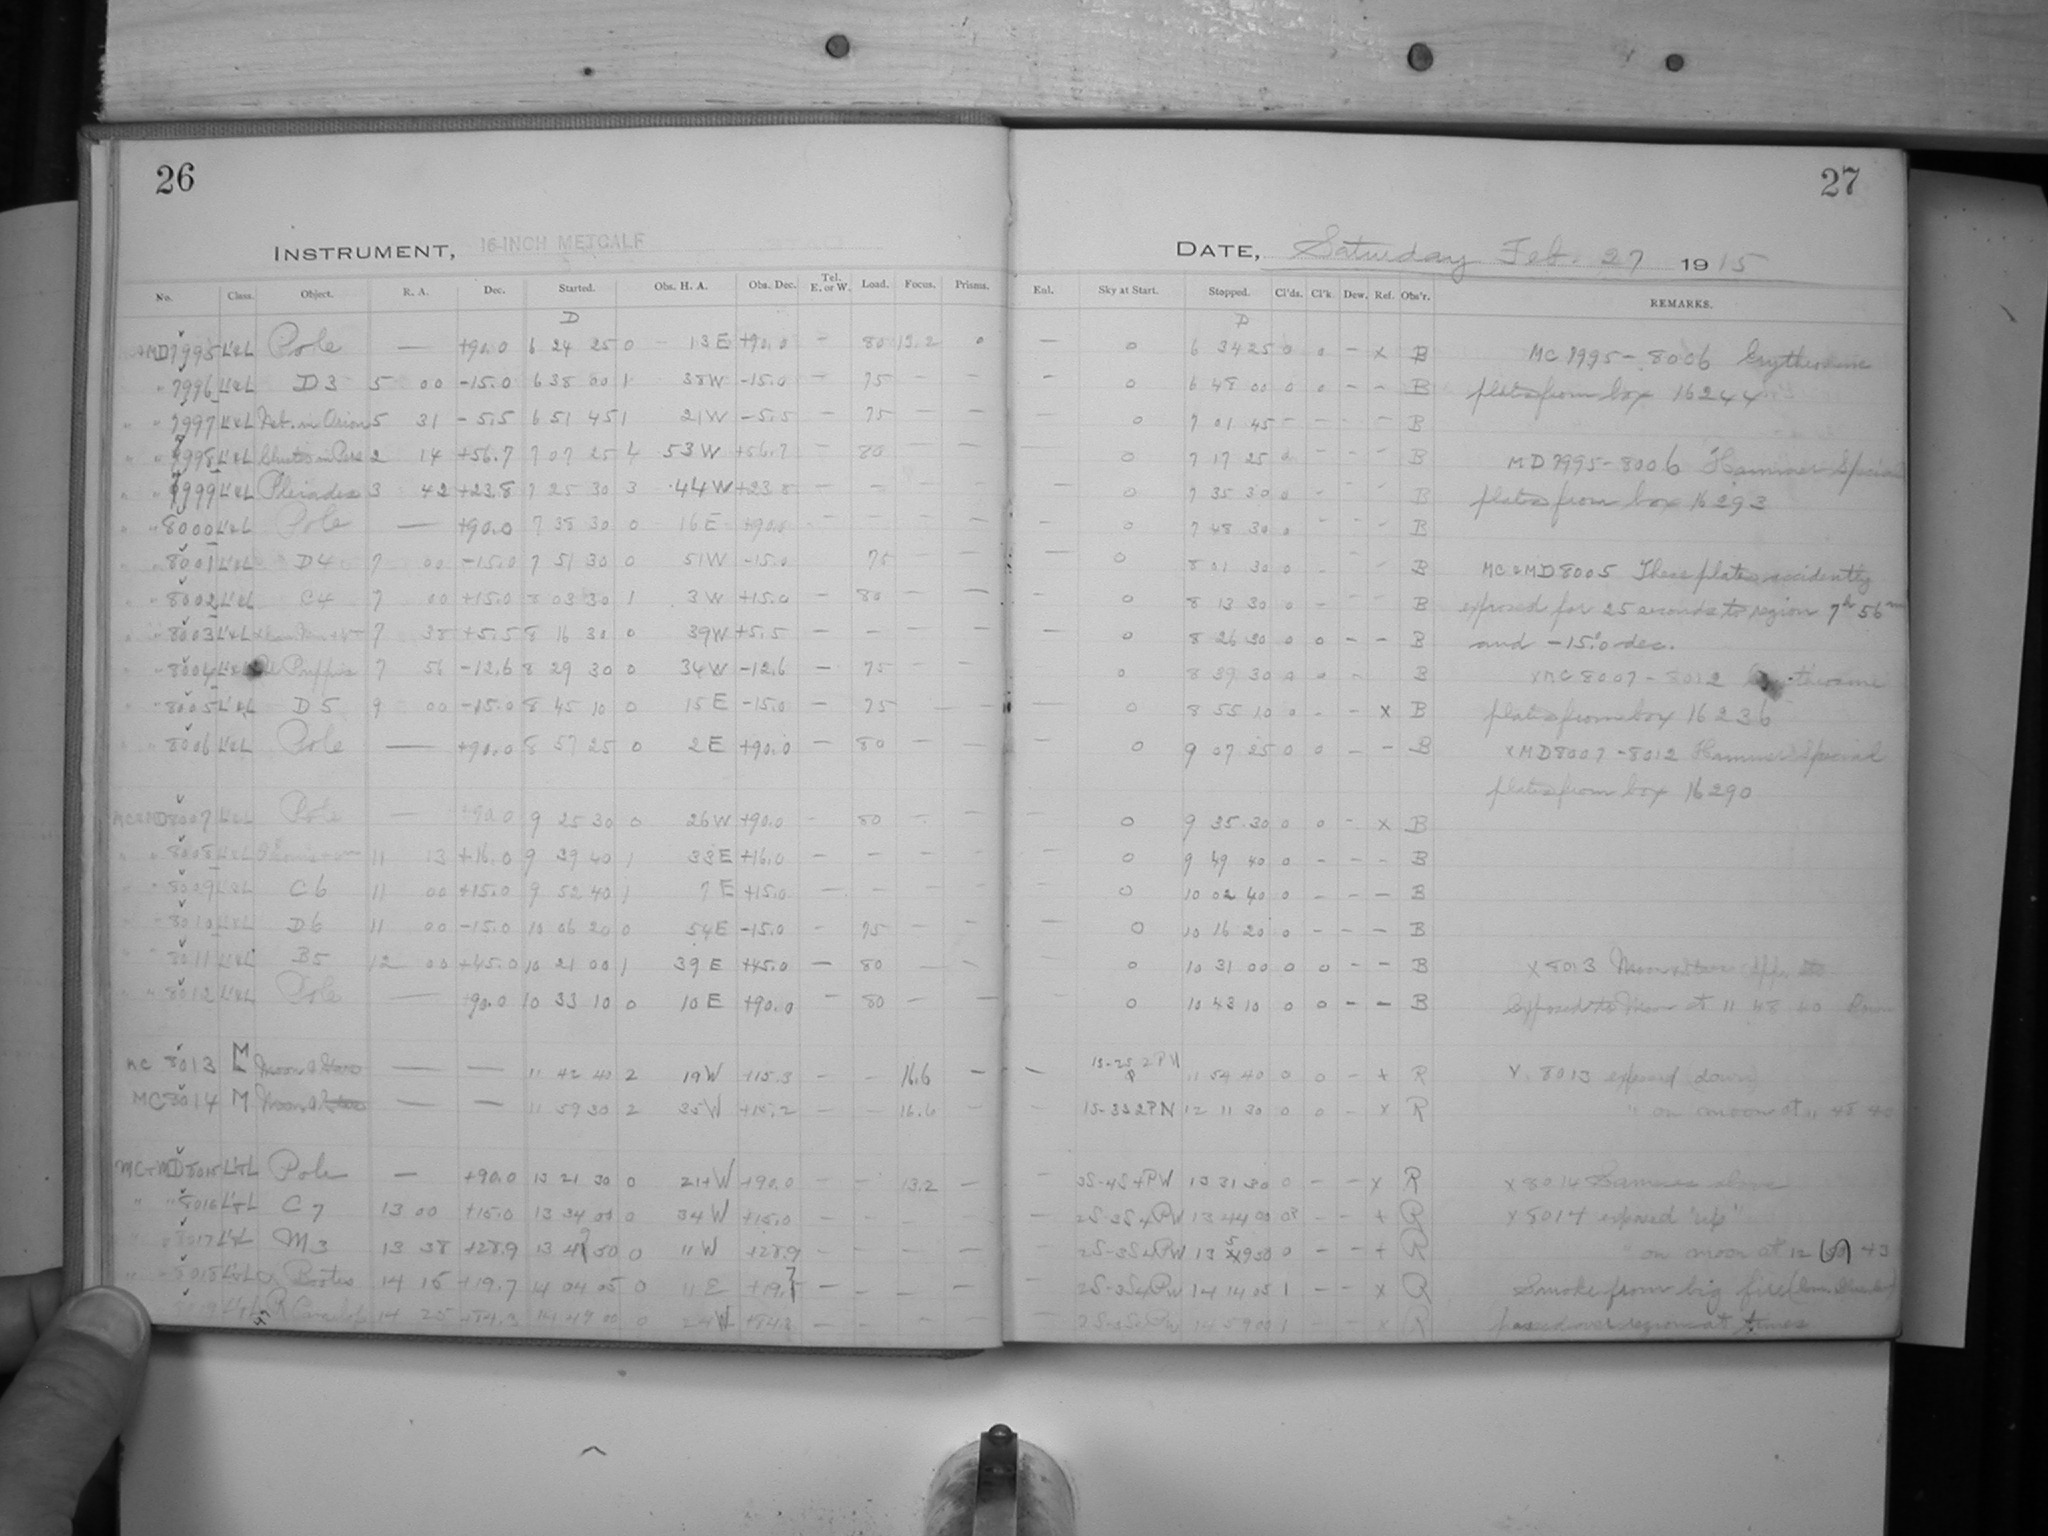 26
INSTRUMENT, 16-INCH METCALF
No. Class. Object. R. A. Dec. Started. Obs. H. A. Obs. Dec. Tel. E. or W. Load. Focus. Prisms.
D
MD 7995 L'&L Pole — +90.0 6 24 25 0 13 E +90.0 — 80 13.2 0
" " 7996 L'&L D3 5 00 -15.0 6 38 00 1 38 W -15.0 — 75 — —
" " 7997 L'&L Neb. in Orion 5 31 -5.5 6 51 45 1 21 W -5.5 — 75 — —
" " 7998 L'&L 2 14 +56.7 7 07 25 4 53 W +56.7 — 80 — —
" " 7999 L'&L Pleiades 3 42 +23.8 7 25 30 3 44 W +23.8 — — — —
" " 8000 L'&L Pole — +90.0 7 38 30 0 16 E +90.0 — — — —
" " 8001 L'&L D4 7 00 -15.0 7 51 30 0 51 W -15.0 75 — —
" " 8002 L'&L C4 7 00 +15.0 8 03 30 1 3 W +15.0 — 80 — —
" " 8003 L'&L 7 38 +5.5 8 16 30 0 39 W +5.5 — — — —
" " 8004 L'&L Puppis 7 56 -12.6 8 29 30 0 34 W -12.6 — 75 — —
" " 8005 L'&L D5 9 00 -15.0 8 45 10 0 15 E -15.0 — 75 — —
" " 8006 L'&L Pole — +90.0 8 57 25 0 2 E +90.0 — 80 — —
MC&MD 8007 L'&L Pole — +90.0 9 25 30 0 26 W +90.0 — 80 — —
" " 8008 L'&L 11 13 +16.0 9 39 40 1 33 E +16.0 — — — —
" " 8009 L'&L C6 11 00 +15.0 9 52 40 1 7 E +15.0 — — — —
" " 8010 L'&L D6 11 00 -15.0 10 06 20 0 54 E -15.0 — 75 — —
" " 8011 L'&L B5 12 00 +45.0 10 21 00 1 39 E +45.0 — 80 — —
" " 8012 L'&L Pole — +90.0 10 33 10 0 10 E +90.0 — 80 — —
MC 8013 M Moon & Stars — — 11 42 40 2 19 W +15.3 — — 16.6 —
MC 8014 M Moon & Stars — — 11 59 30 2 35 W +15.2 — — 16.6 —
MC+MD 8015 L'&L Pole — +90.0 13 21 30 0 21+W +90.0 — — 13.2 —
" " 8016 L'&L C7 13 00 +15.0 13 34 00 0 34 W +15.0 — — — —
" " 8017 L'&L M3 13 38 +28.9 13 49 50 0 11 W +28.9 — — — —
" " 8018 L'&L α Bootes 14 15 +19.7 14 04 05 0 11 E +19.7 — — — —
8019 L'&L R Camelop 14 25 +84.3 14 49 00 0 24 W +84.3 — — — —
27
DATE, Saturday Feb. 27 1915
Enl. Sky at Start. Stopped. Cl'ds. Cl'k. Dew. Ref. Obs'r. REMARKS.
D
— 0 6 34 25 0 0 — x B MC 7995-8006 Erythrosine
— 0 6 48 00 0 0 — — B plates from box 16244
— 0 7 01 45 — — — — B
0 7 17 25 0 — — — B MD 7995-8006 Hammer Special
— 0 7 35 30 0 — — — B plates from box 16293
— 0 7 48 30 0 — — — B
— 0 8 01 30 0 — — — B MC & MD 8005 These plates accidently
— 0 8 13 30 0 — — — B exposed for 25 seconds to region 7h 56m
— 0 8 26 30 0 0 — — B and -15.0 dec.
0 8 39 30 0 0 — B xMC 8007-8012
— 0 8 55 10 0 — — x B plates from box 16236
0 9 07 25 0 0 — — B xMD 8007-8012 Hammer Special
plates from box 16290
— 0 9 35 30 0 0 — x B
— 0 9 49 40 0 — — — B
— 0 10 02 40 0 — — — B
— 0 10 16 20 0 — — — B
— 0 10 31 00 0 0 — — B x 8013 Moon & Stars
0 10 43 10 0 0 — — B Exposed to Moon at 11 48 40
— 13-2S 2PW 11 54 40 0 0 — + R x 8013 exposed down
15-3S 2PN 12 11 30 0 0 — x R " on moon at 11 48 40
— 3S-4S+PW 13 31 30 0 — — x R x 8014 Same as above
2S-3S4PW 13 44 00 0? — — + R x 8014 exposed "up"
2S-3S4PW 13 59 50 0 — — + R " on moon at 12 43
— 2S-3S4PW 14 14 05 1 — — x R Smoke from big fire
— 14 59 00 1 — — x R passed over region at times